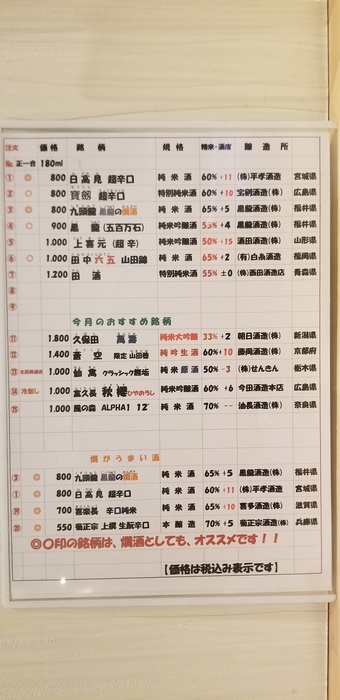 注文 価格 銘柄 規格 精米・酒度 醸造所
No. 正一合 180ml
① ◎ 800 日高見 超辛口 純米酒 60% +11 (株)平孝酒造 宮城県
② ○ 800 寶剱 超辛口 特別純米酒 60% +10 宝剱酒造(株) 広島県
③ ◎ 800 九頭龍 黒龍の燗酒 純米酒 65% +5 黒龍酒造(株) 福井県
④ ○ 900 黒龍 (五百万石) 純米吟醸 55% +4 黒龍酒造(株) 福井県
⑤ 1.000 上喜元 (超辛) 純米吟醸 50% +15 酒田酒造(株) 山形県
⑥ ○ 1.000 田中六五 山田錦 純米酒 65% +2 (有)白糸酒造 福岡県
⑦ 1.200 田酒 特別純米酒 55% ±0 (株)西田酒造店 青森県
⑧
⑨
今月のおすすめ銘柄
⑪ 1.800 久保田 萬壽 純米大吟醸 33% +2 朝日酒造(株) 新潟県
⑫ 1.400 蒼空 限定 山田錦 純吟生酒 60% +10 藤岡酒造(株) 京都府
⑬ 1.000 仙禽 クラッシック無垢 純米原酒 50% -3 (株)せんきん 栃木県
⑭ 冷卸し 1.000 富久長 秋櫻 ひやおろし 純米吟醸酒 60% +6 今田酒造本店 広島県
⑮ 1.000 風の森 ALPHA1 12° 純米酒 70% -- 油長酒造(株) 奈良県
燗がうまい酒
③ ◎ 800 九頭龍 黒龍の燗酒 純米酒 65% +5 黒龍酒造(株) 福井県
① ◎ 800 日高見 超辛口 純米酒 60% +11 (株)平孝酒造 宮城県
700 喜楽長 辛口純米 純米酒 65% +10 喜多酒造(株) 滋賀県
⑳ 550 菊正宗 上撰 生酛辛口 本醸造 70% +5 菊正宗酒造(株) 兵庫県
◎○印の銘柄は、燗酒としても、オススメです!!
【価格は税込み表示です】